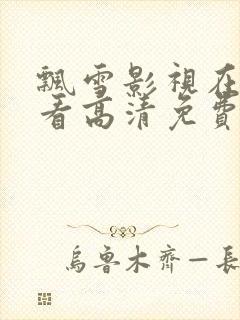 飄雪影視在
看高清免費
烏魯木齊—長